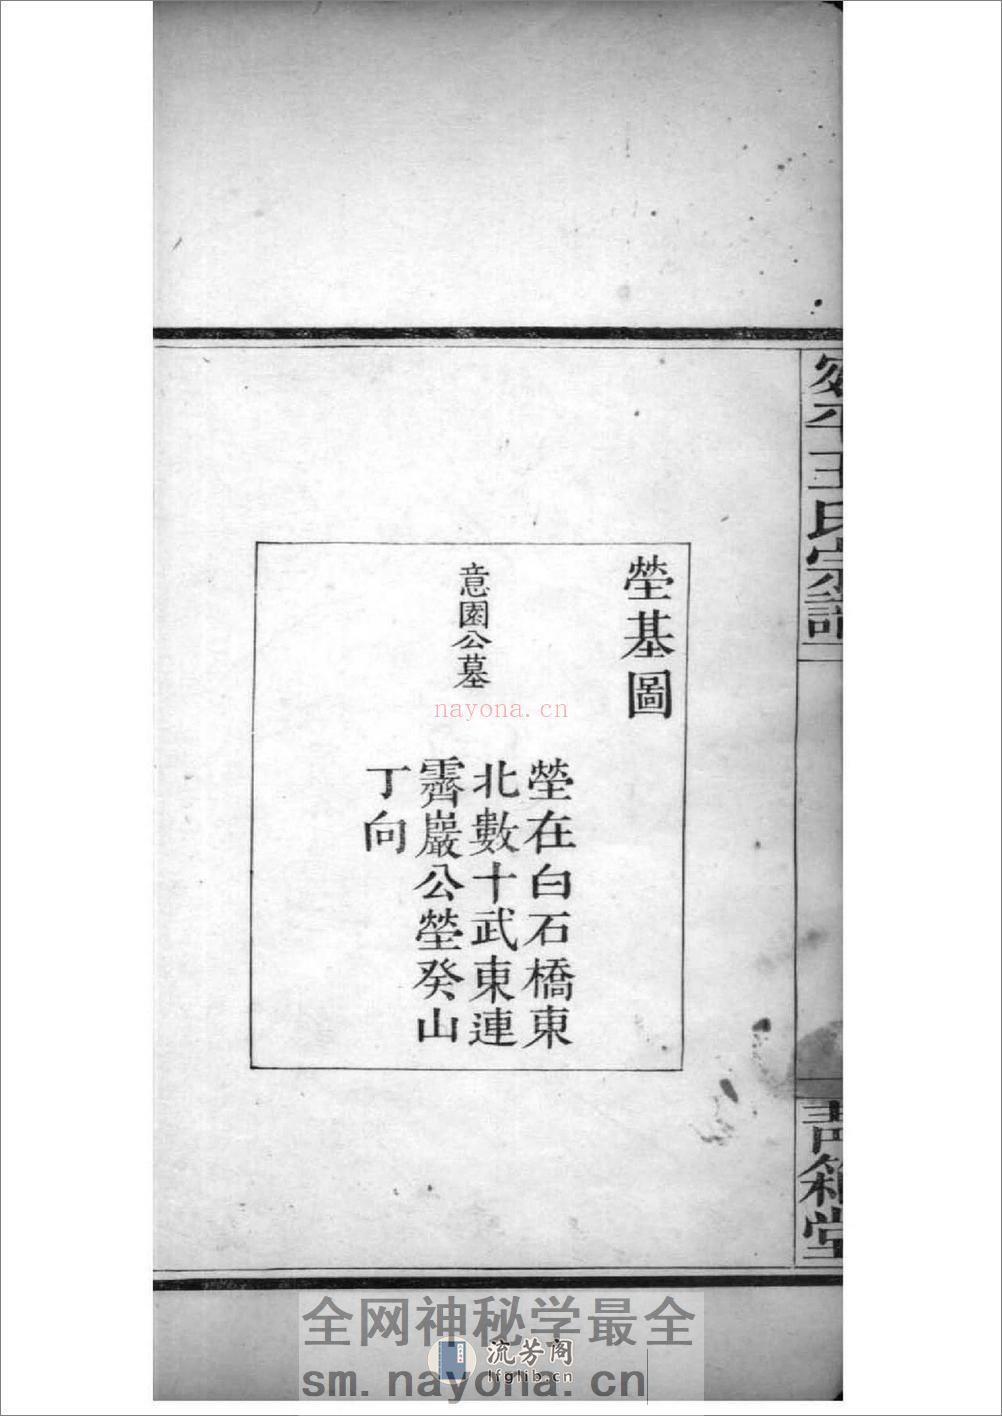 安平王氏宗譜
塋基圖
意園公墓
塋在白石橋東
北數十武東連
霽巖公塋癸山
丁向
青箱堂
nayona.cn
全网神秘学最全
流芳阁
lfglib.cn
sm.nayona.cn